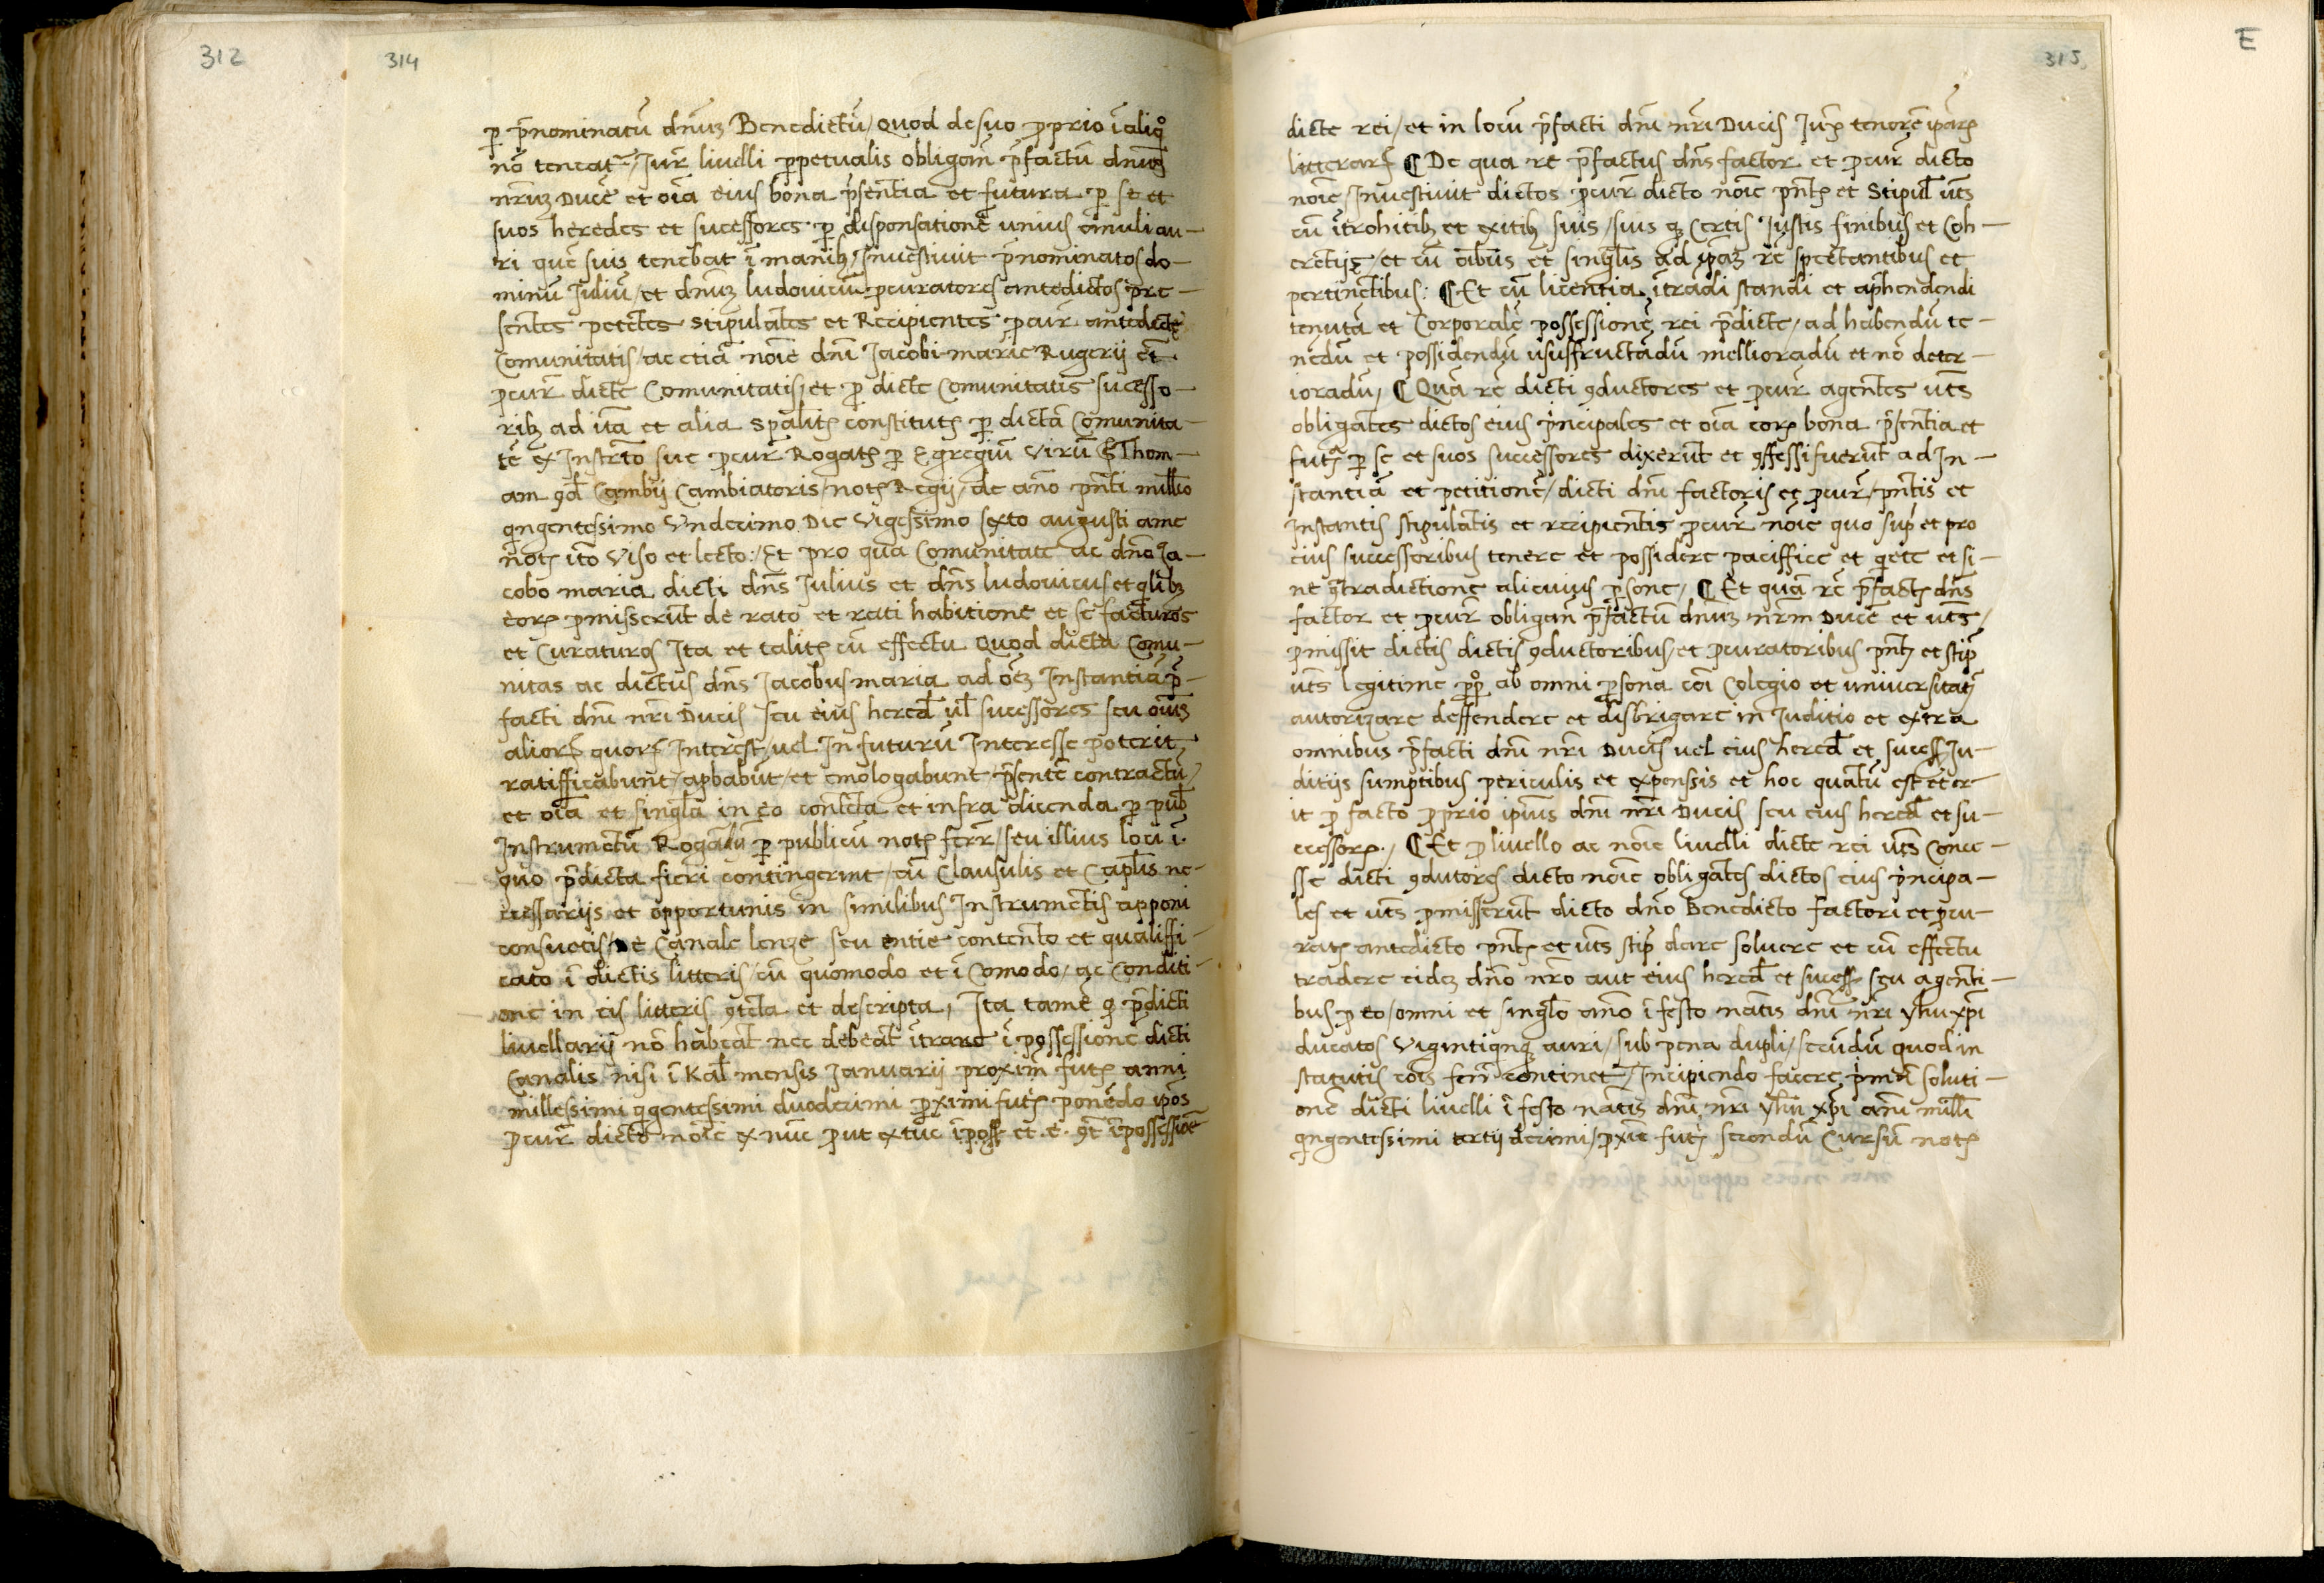 312
314
p p̄nominatū dnūz Benedictū / Quod de suo proprio ī aliqͦ
nō teneat᷑ / Jur̄ liuelli perpetualis obligan̄ p̄factū dnūz
nr̄uz Ducē et oīa eius bona p̄sentia et futura p se et
suos heredes et sucessores p dispensationē unius anuli au-
ri quē suis tenebat ī manibꝫ / Inuestiuit p̄nominatos do-
minū Juliū / et dnūz ludouicū procuratores antedictos pre-
sentes petētes stipulātes et Recipientes procur̄ antedictę
Comunitatis / ac etiā noīe dnī Jacobi marię Rugerij etī
procur̄ dicte Comunitatis / et pro dicte Comunitatis sucesso-
ribꝫ ad ītā et alia spālitꝫ constitutꝫ p dictā Comunita-
tē ex Instrm̄to sue procur̄ Rogatꝫ p Egregiū Virū S Thom-
am qd̄ Cambij Cambiatoris / notꝫ Regij / de anō pn̄ti mill̄io
qngentessimo Vndecimo Die Vigessimo sexto augusti a me
notꝫ ītō Viso et lecto : / Et pro qua Comunitate ac dnō Ja-
cobo maria dicti dns̄ Julius et dns̄ ludouicus et qlibꝫ
eorꝝ promisserūt de rato et rati habitione et se facturos
et Curaturos Ita et talitꝫ cū effectu Quod dicta Comu-
nitas ac dictus dns̄ Jacobus maria ad oēz Instantiā p̄-
facti dnī nr̄i Ducis seu eius hered̄ ul̄ sucessores seu oīuz
aliorꝝ quorꝝ Interest / uel In futurū Interesse poterit
ratifficabunt / aprobabūt / et emologabunt p̄sentē contractū /
et oīa et singl̄a in eo conten̄ta et infra dicenda p pub̄
Instrumētū Rogādū p publicū notꝫ ferr̄ / seu illius loci ī
quo p̄dicta fieri contingerint / cū Clausulis et Capl̄is ne-
cessarijs et opportunis in similibus Instrumētis apponi
consuetis / De Canale lenze seu entie contento et qualiffi-
cato ī dictis litteris / cū quomodo et ī comodo / ac Conditi-
one in eis litteris 9tēta et descripta, Ita tamē ꝙ p̄dicti
liuellarij nō habeāt nec debeāt ītrare ī possessionē dicti
Canalis nisi ī Kal̄ mensis Januarij proxim̄ futꝫ anni
millessimi qgentessimi duodecimi proximi futꝫ ponēdo ipōs
procur̄ dicto noīe ex nūc prout ex tūc ī poss et .c. 9t̄ ī possessionē
315
E
dicte rei / et in locū p̄facti dnī nr̄i Ducis Jux̄ tenorē ipāꝝ
litterarꝝ ¶ De qua re p̄factus dns̄ factor et procur̄ dicto
noīe / Inuestiuit dictos procur̄ dicto noīe pn̄tꝫ et Stipul̄ uts̄
cū ītrohitibꝫ et exitibꝫ suis / suis qꝫ Certis Justis finibus et Coh-
erētijs / et cū oībus et singl̄is ad ipāz rē spectantibus et
pertinētibus : ¶ Et cū licentia ītrādi standi et aprhendendi
tenutā et Corporalē possessionē rei p̄dicte / ad habendū te-
nēdū et possidendū ususfructādū mellioradū et nō deter-
ioradū / ¶ Quā rē dicti 9ductores et procur̄ agentes uts̄
obligātes dictos eius principales et oīa eorꝝ bona p̄sentia et
futꝫ p se et suos successores dixerūt et 9ffessi fuerūt ad In-
stantiā et petitionē / dicti dnī factoris et procur̄ / pn̄tis et
Instantis stipulātis et recipientis procur̄ noīe quo sup̄ et pro
eius successoribus tenere et possidere paciffice et qete et si-
ne 9tradictione alicuius p̱sone / ¶ Et quā rē p̄factꝫ dns̄
factor et procur̄ obligan̄ p̄factū dnūz nr̄m Ducē et uts̄ /
promissit dictis dictis 9ductoribus / et procuratoribus pn̄tꝫ et stip̄
uts̄ legitime ppͦ ab omni p̱sona coī Colegio et uniuersitatꝫ
autorizare deffendere et disbrigare in Juditio et extra
omnibus p̄facti dnī nr̄i Ducis uel eius hered̄ et sucess̄ Ju-
ditijs sumptibus periculis et expenssis et hoc quātū est et er-
it pro facto proprio ipīus dnī nr̄i Ducis seu eius hered̄ et su-
cessorꝝ. / ¶ Et pro liuello ac noīe liuelli dicte rei uts̄ Conce-
sse dicti 9dutores dicto noīe obligātes dictos eius principa-
les et uts̄ promisserūt dicto dnō Benedicto factori et procu-
ratꝫ antedicto pn̄tꝫ et uts̄ stip̄ dare soluere et cū effectu
tradere eidez dnō nr̄o aut eius hered̄ et sucess̄ seu agēnti-
bus pro eo / omni et singl̄o anō ī festo natīs dnī nr̄i yhu xp̄i
ducatos Vigintiqnqꝫ auri / sub pena dupli / secūdū quod in
statutis coīs ferr̄ continet᷑ / Incipiendo facere primā soluti-
onē dicti liuelli ī festo natīs dnī nr̄i yhu xp̄i anī mill̄i
qingentessimi tertij decimi / proxīe futꝫ secondū Cursū notꝫ